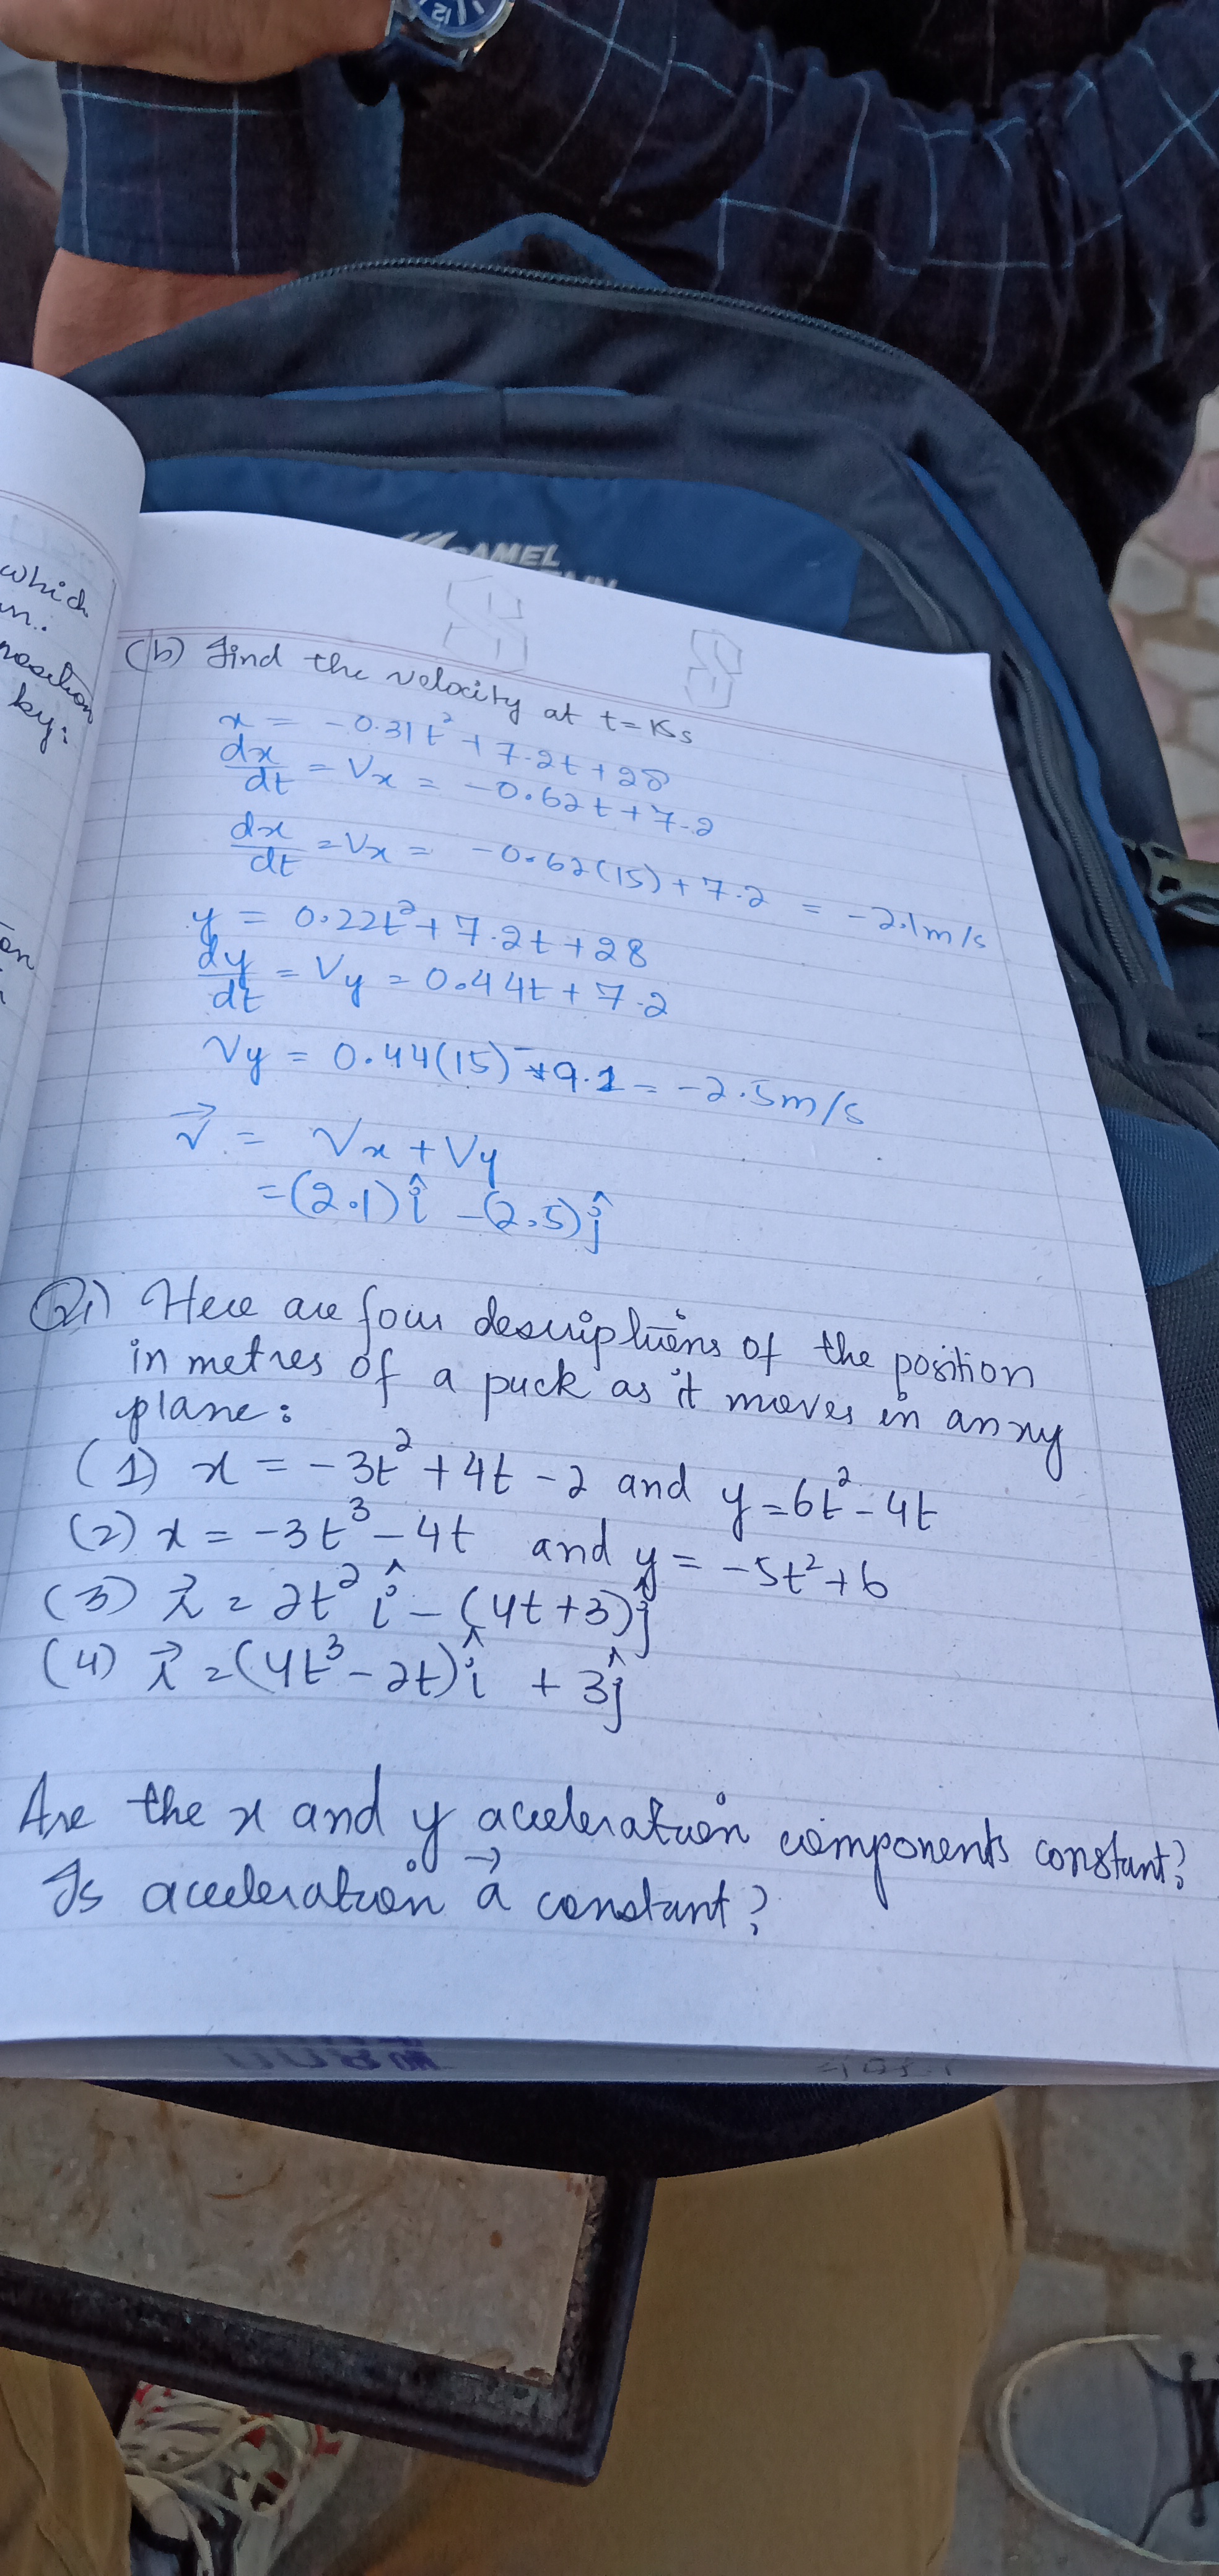 12
CAMEL
which
position
by:
(b) Find the velocity at t = 15s
x = -0.31t² + 7.2t + 28
dx/dt = Vx = -0.62t + 7.2
dx/dt = Vx = -0.62(15) + 7.2 = -2.1m/s
y = 0.22t² + 7.2t + 28
dy/dt = Vy = 0.44t + 7.2
Vy = 0.44(15) - 9.1 = -2.5m/s
v⃗ = Vx + Vy
=(2.1)î -(2.5)ĵ
Q1) Here are four descriptions of the position
in metres of a puck as it moves in an xy
plane:
(1) x = -3t² + 4t - 2 and y = 6t² - 4t
(2) x = -3t³ - 4t and y = -5t² + 6
(3) r⃗ = 2t² î - (4t+3)ĵ
(4) r⃗ = (4t³ - 2t)î + 3ĵ
Are the x and y acceleration components constant?
Is acceleration a⃗ constant?